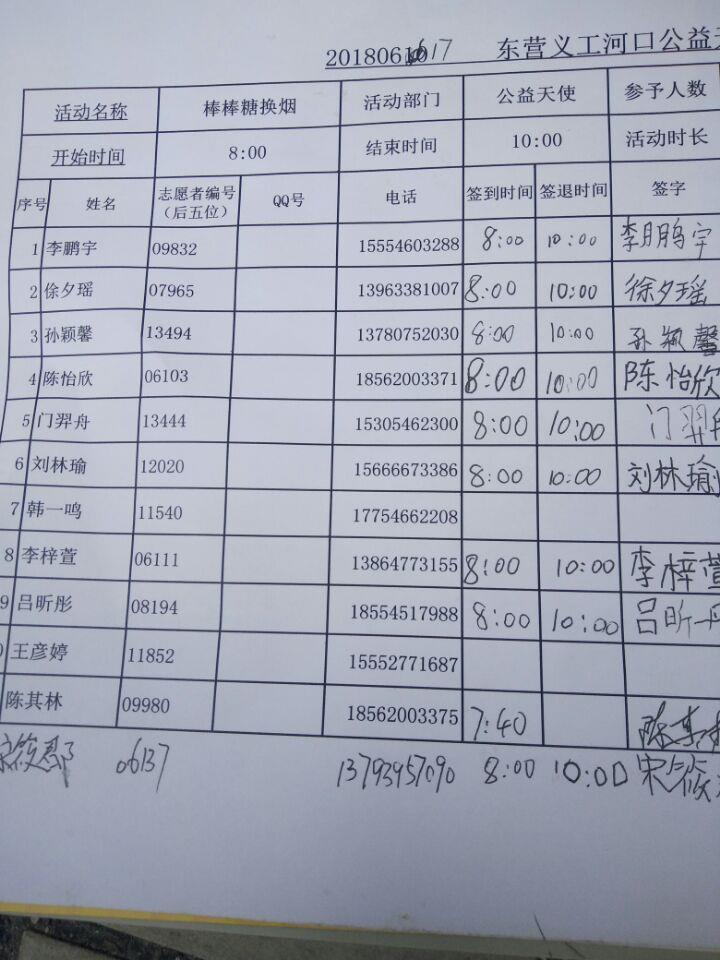 20180617 东营义工河口公益天
活动名称 棒棒糖换烟 活动部门 公益天使 参予人数
开始时间 8:00 结束时间 10:00 活动时长
序号 姓名 志愿者编号（后五位） QQ号 电话 签到时间 签退时间 签字
1 李鹏宇 09832 15554603288 8:00 10:00 李鹏宇
2 徐夕瑶 07965 13963381007 8:00 10:00 徐夕瑶
3 孙颖馨 13494 13780752030 8:00 10:00 孙颖馨
4 陈怡欣 06103 18562003371 8:00 10:00 陈怡欣
5 门羿舟 13444 15305462300 8:00 10:00 门羿舟
6 刘林瑜 12020 15666673386 8:00 10:00 刘林瑜
7 韩一鸣 11540 17754662208
8 李梓萱 06111 13864773155 8:00 10:00 李梓萱
9 吕昕彤 08194 18554517988 8:00 10:00 吕昕
王彦婷 11852 15552771687
陈其林 09980 18562003375 7:40 陈其林
06137 13793957090 8:00 10:00 宋